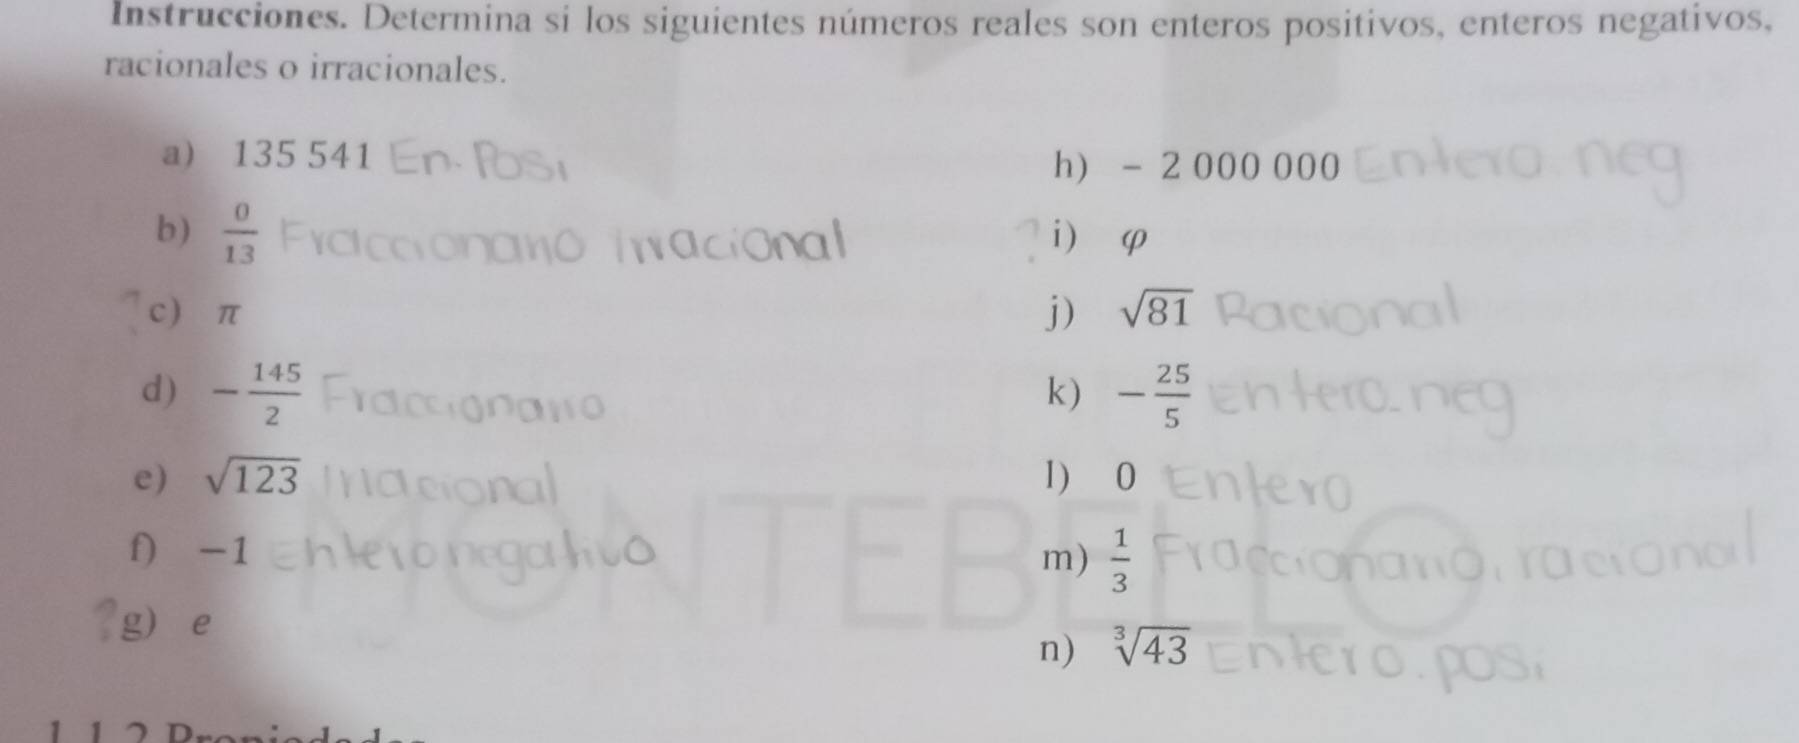 Instrucciones. Determina si los siguientes números reales son enteros positivos, enteros negativos,
racionales o irracionales.
a) 135 541 En. Posi
b) 0/13 Fraccionario irracional
? c) π
d) −145/2 Fraccionario
e) √123 Irracional
f) −1 Entero negativo
? g) e
h) − 2 000 000 Entero neg
? i) φ
j) √81 Racional
k) −25/5 Entero. neg
l) 0 Entero
m) 1/3 Fraccionario, racional
n) ∛43 Entero. posi
MONTEBELLO